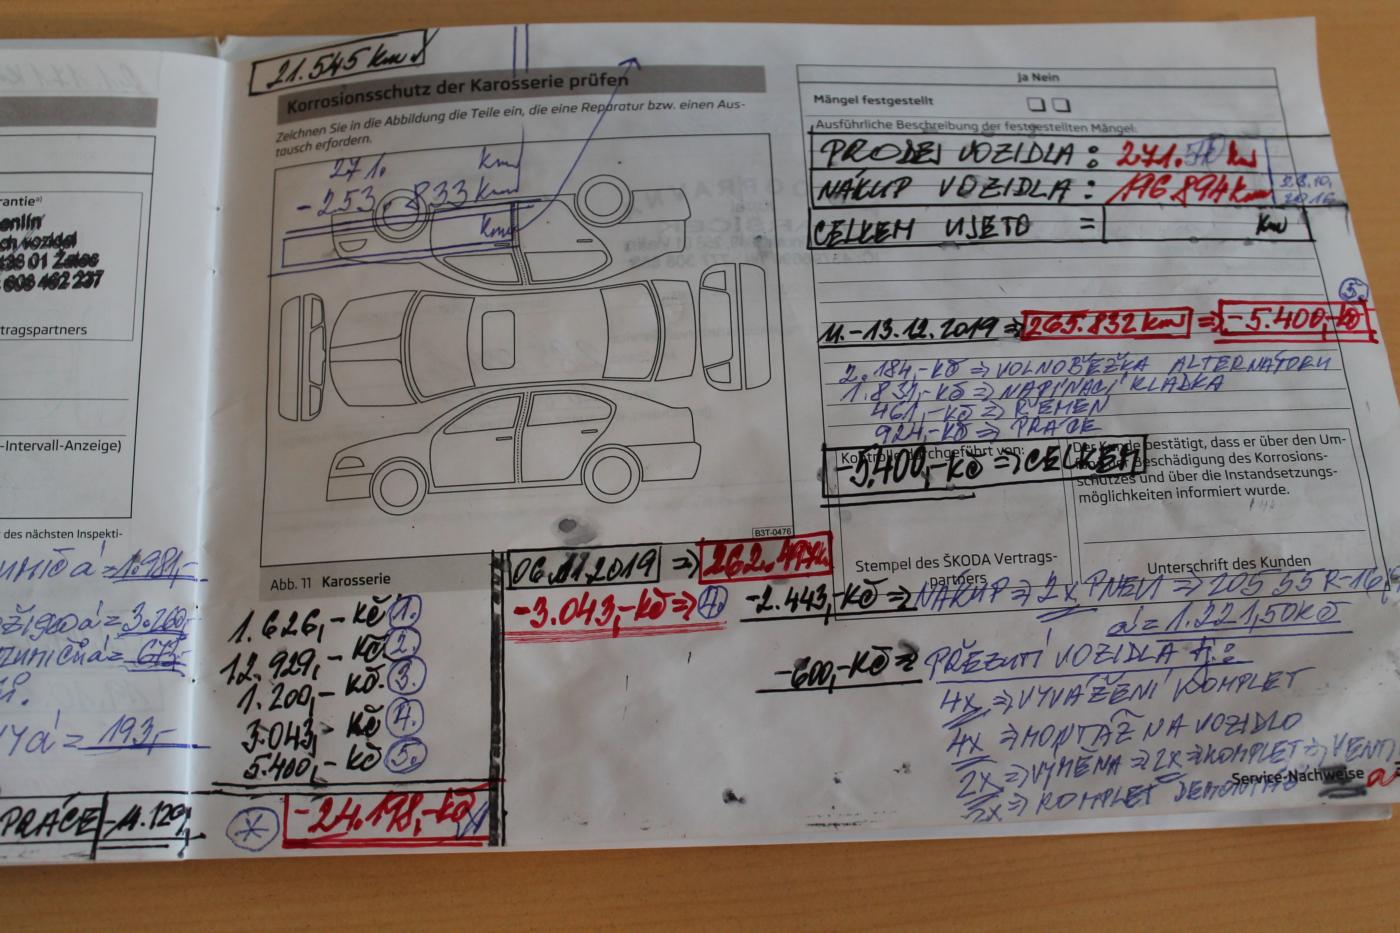 21.545 km
Korrosionsschutz der Karosserie prüfen
Zeichnen Sie in die Abbildung die Teile ein, die eine Reparatur bzw. einen Aus-
tausch erfordern.
271. km
-253.833 km
km
B3T-0476
Abb. 11 Karosserie
1.626,-Kč 1.
12.929,-Kč 2.
1.200,-Kč 3.
3.043,-Kč 4.
5.400,-Kč 5.
-24.198,-Kč
06.11.2019 => 262.
-3.043,-Kč => 4.
ja Nein
Mängel festgestellt
Ausführliche Beschreibung der festgestellten Mängel:
PRODEJ VOZIDLA : 271. km
NÁKUP VOZIDLA : 176 894 km
CELKEM UJETO = km
5.
11.-13.12.2019 => 265.832 km => -5.400,-Kč
2.184,-Kč => VOLNOBĚŽKA ALTERNÁTORU
1.831,-Kč => NAPÍNACÍ KLADKA
461,-Kč => ŘEMEN
924,-Kč => PRÁCE
Kontrolle durchgeführt von:
-5.400,-Kč => CELKEM
Der Kunde bestätigt, dass er über den Um-
Beschädigung des Korrosions-
schutzes und über die Instandsetzungs-
möglichkeiten informiert wurde.
Stempel des ŠKODA Vertrags-
partners
Unterschrift des Kunden
-2.443,-Kč => NÁKUP => 2x PNEU => 205 55 R-16
á = 1.221,50 Kč
-600,-Kč => PŘEZUTÍ VOZIDLA
4x => VYVÁŽENÍ KOMPLET
4x => MONTÁŽ NA VOZIDLO
2x => VÝMĚNA => 2x => KOMPLET => VENTI
2x => KOMPLET
Service-Nachweise
rantie
enlin
ch vozidel
438 01 Žatec
608 462 237
rtragspartners
-Intervall-Anzeige)
des nächsten Inspekti-
á = 1.981,-
á = 3.260,-
á = 673,-
á = 193,-
PRÁCE -11.129,